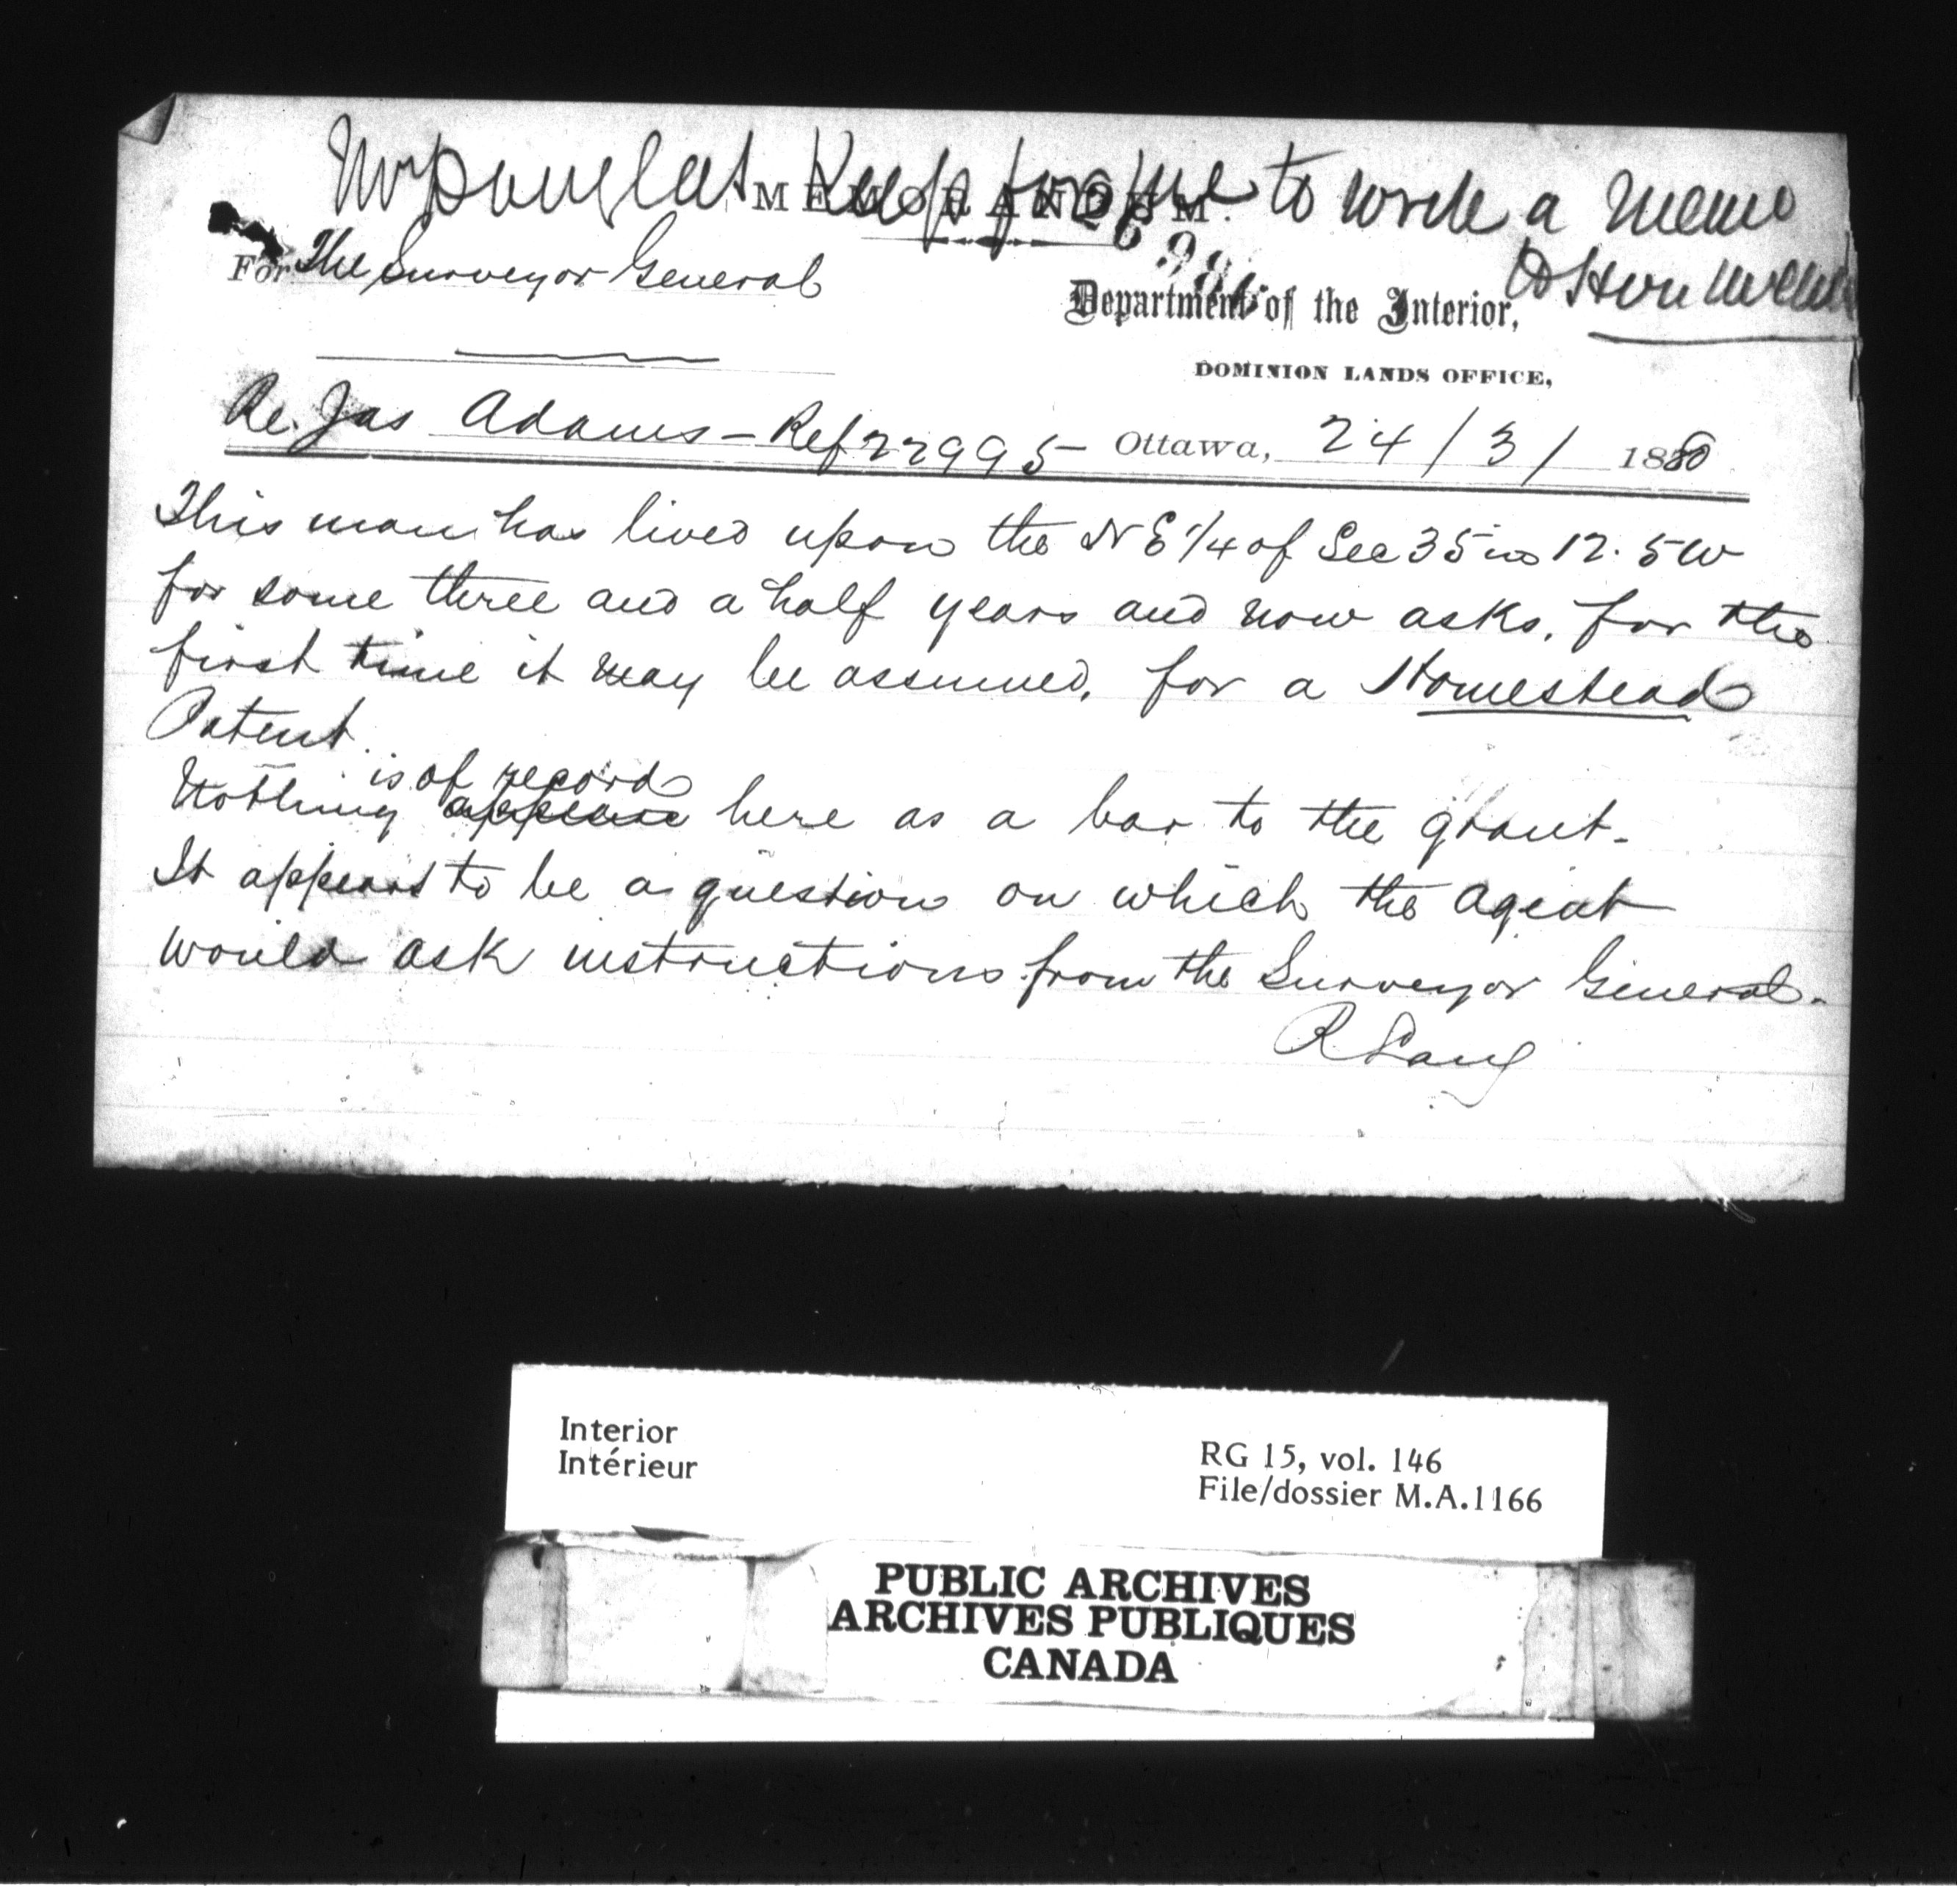 Mr Douglas Keep for me to write a memo
to Hon
MEMORANDUM.
For The Surveyor General
Department of the Interior,
DOMINION LANDS OFFICE,
Re. Jas Adams - Ref 22995 - Ottawa, 24/3/ 1880
This man has lived upon the NE 1/4 of Sec 35 in 12. 5W
for some three and a half years and now asks, for the
first time it may be assumed, for a Homestead
Patent.
is of record
Nothing appears here as a bar to the grant.
It appears to be a question on which the agent
would ask instructions from the Surveyor General.
R Lang
Interior
Intérieur
RG 15, vol. 146
File/dossier M.A.1166
PUBLIC ARCHIVES
ARCHIVES PUBLIQUES
CANADA